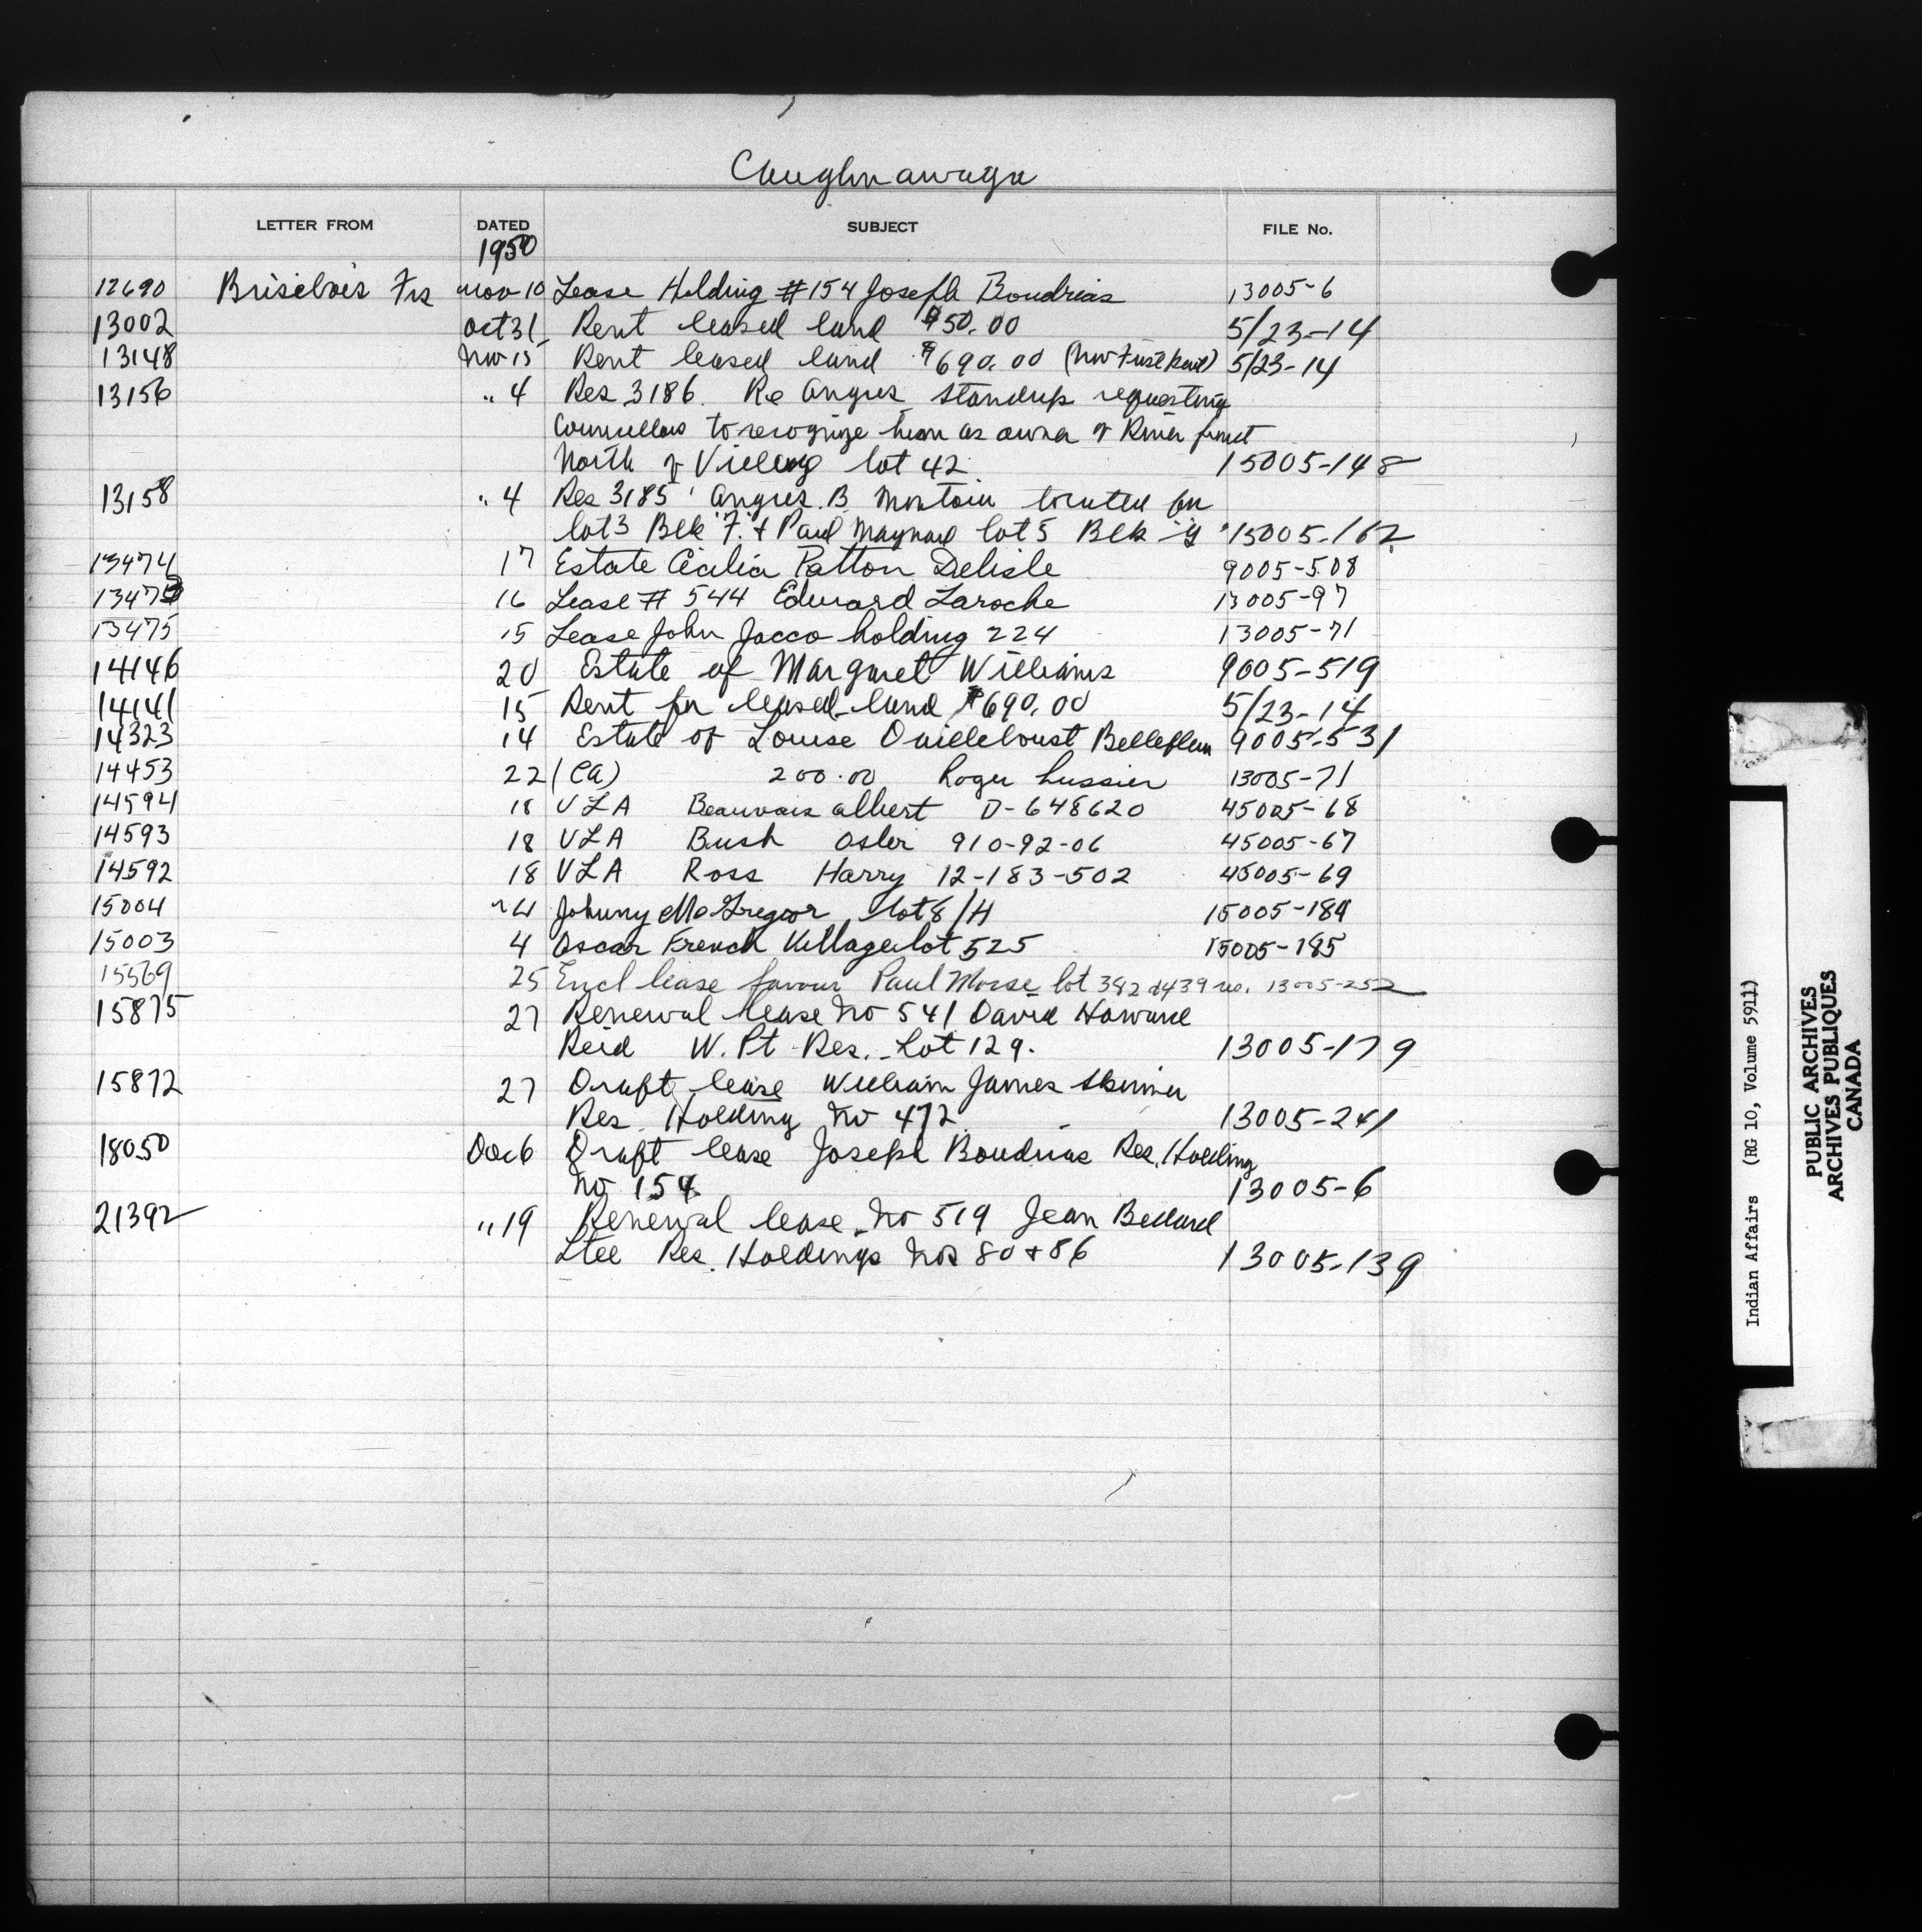 Caughnawaga
LETTER FROM DATED SUBJECT FILE No.
1950
12690 Brisebois Frs Nov 10 Lease Holding #154 Joseph Boudrias 13005-6
13002 Oct 31 Rent leased land $50.00 5/23-14
13148 Nov 15 Rent leased land $690.00 5/23-14
13156 " 4 Res 3186. Re Angus Standup requesting
Councillors to recognize him as owner of River front
North of Village lot 42 15005-148
13158 " 4 Res 3185 Angus B. Montour located for
lot 3 Blk "F" & Paul Maynard lot 5 Blk 15005-162
13474 17 Estate Cecilia Patton Delisle 9005-508
13473 16 Lease # 544 Edward Laroche 13005-97
13475 15 Lease John Jocco holding 224 13005-71
14146 20 Estate of Margaret Williams 9005-519
14141 15 Rent for leased land $690.00 5/23-14
14323 14 Estate of Louise Quillebout 9005-531
14453 22 (CA) 200.00 Roger Lussier 13005-71
14594 18 VLA Beauvais Albert D-648620 45005-68
14593 18 VLA Bush Osler 910-92-06 45005-67
14592 18 VLA Ross Harry 12-183-502 45005-69
15004 Johnny McGregor lot 8/H 15005-184
15003 4 Oscar French Village lot 525 15005-185
15569 25 Encl lease favour Paul Morse lot 382 13005-252
15875 27 Renewal lease No 541 David Howard
Reid W. Pt Res. Lot 129. 13005-179
15872 27 Draft lease William James Skinner
Res. Holding No 472 13005-241
18050 Dec 6 Draft lease Joseph Boudrias Res. Holding
No 154 13005-6
21392 " 19 Renewal lease No 519 Jean Bedard
Ltee Res. Holdings Nos 80 & 86 13005-139
Indian Affairs (RG 10, Volume 5911)
PUBLIC ARCHIVES
ARCHIVES PUBLIQUES
CANADA